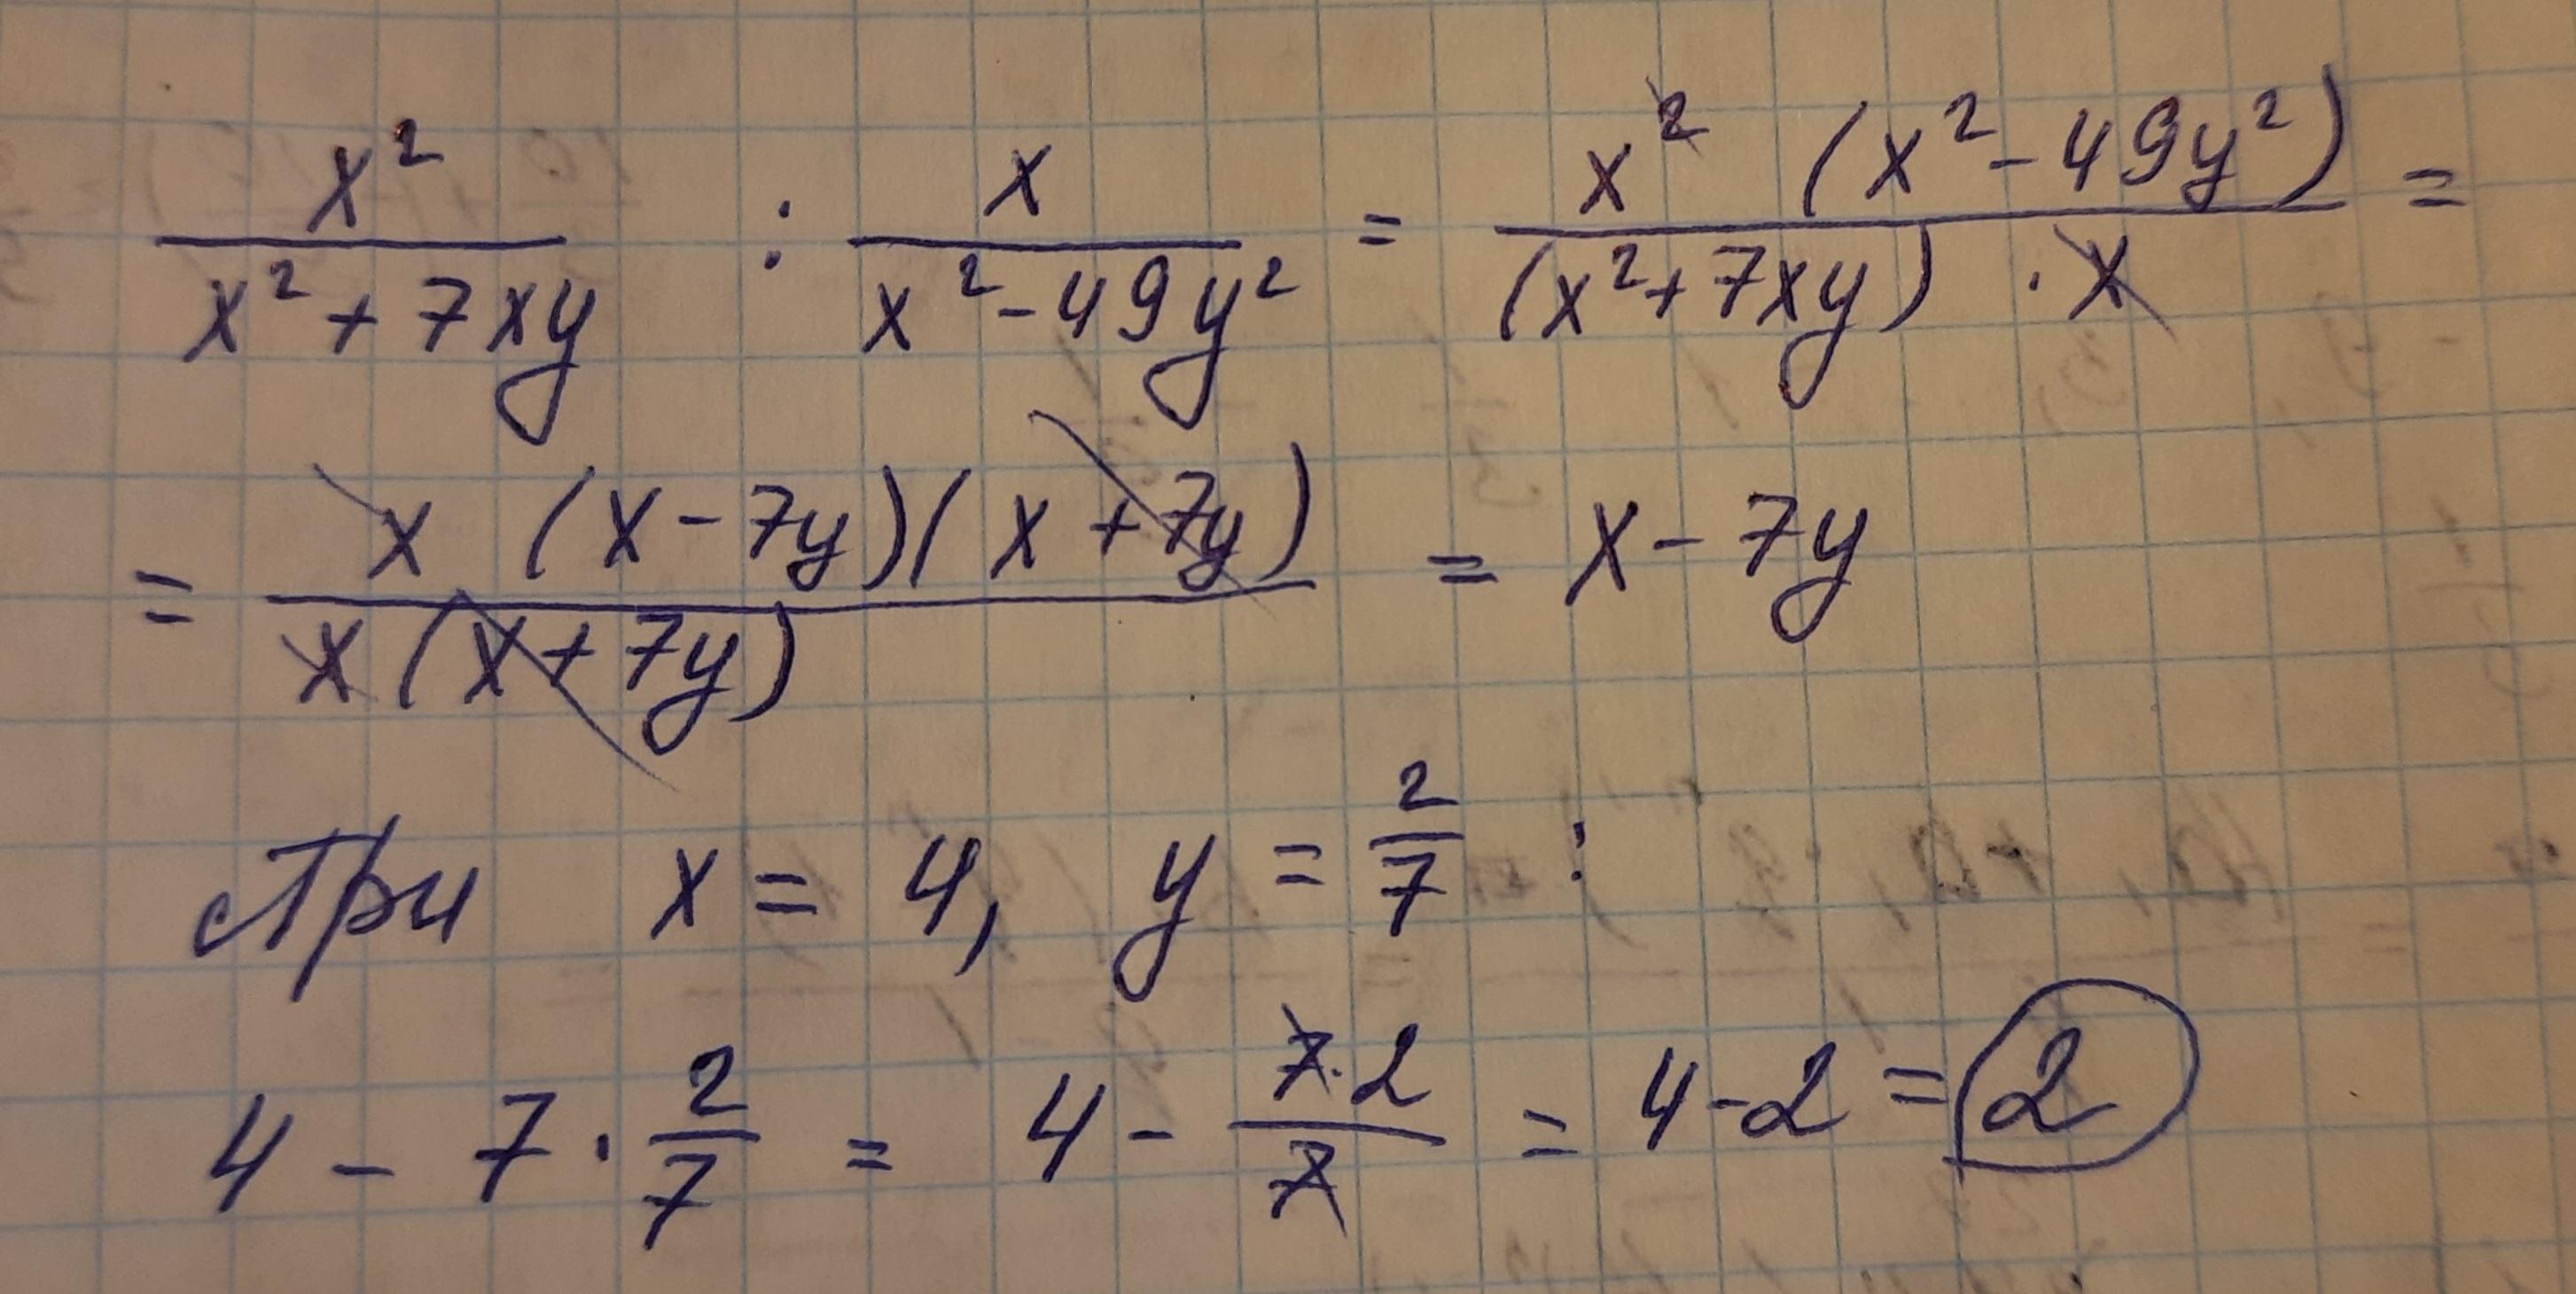 x² / (x² + 7xy) : x / (x² - 49y²) = x² (x² - 49y²) / ((x² + 7xy) · x) =
= x (x - 7y)(x + 7y) / (x (x + 7y)) = x - 7y
При x = 4, y = 2/7 :
4 - 7 · 2/7 = 4 - 7·2/7 = 4 - 2 = 2